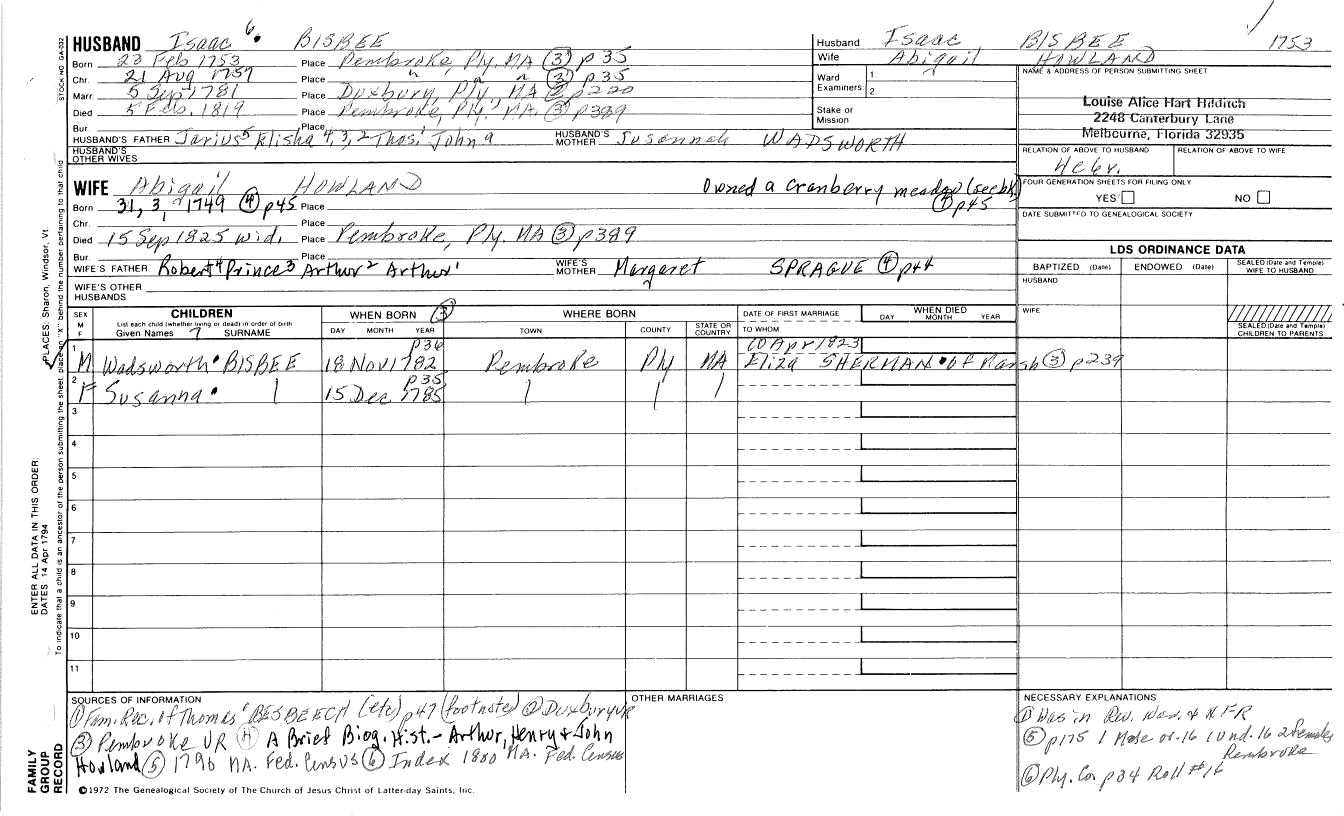 HUSBAND Isaac 6. BISBEE
Born 23 Feb 1753 Place Pembroke, Ply, MA (3) p35
Chr. 21 Aug 1757 Place " " " (3) p35
Marr. 5 Sep 1781 Place Duxbury, Ply, MA (2) p220
Died 5 Feb. 1819 Place Pembroke, Ply. MA. (3) p389
Bur. Place
HUSBAND'S FATHER Jarius5 Elisha 4,3,2 Thos.1 John a HUSBAND'S MOTHER Susannah WADSWORTH
HUSBAND'S OTHER WIVES
WIFE Abigail HOWLAND Owned a cranberry meadow (see bk)
Born 31, 3, 1749 (4) p45 Place (4) p45
Chr. Place
Died 15 Sep 1825 wid. Place Pembroke, Ply. MA (3) p389
Bur. Place
WIFE'S FATHER Robert4 Prince3 Arthur2 Arthur1 WIFE'S MOTHER Margaret SPRAGUE (4) p44
WIFE'S OTHER HUSBANDS
Husband Isaac BISBEE 1753
Wife Abigail HOWLAND
Ward Examiners: 1. 2.
Stake or Mission
NAME & ADDRESS OF PERSON SUBMITTING SHEET
Louise Alice Hart Hilditch
2248 Canterbury Lane
Melbourne, Florida 32935
RELATION OF ABOVE TO HUSBAND RELATION OF ABOVE TO WIFE
FOUR GENERATION SHEETS FOR FILING ONLY
YES NO
DATE SUBMITTED TO GENEALOGICAL SOCIETY
LDS ORDINANCE DATA
BAPTIZED (Date) ENDOWED (Date) SEALED (Date and Temple) WIFE TO HUSBAND
HUSBAND
WIFE
SEALED (Date and Temple) CHILDREN TO PARENTS
SEX M F CHILDREN WHEN BORN (3) WHERE BORN DATE OF FIRST MARRIAGE WHEN DIED
List each child (whether living or dead) in order of birth
Given Names 7 SURNAME DAY MONTH YEAR TOWN COUNTY STATE OR COUNTRY TO WHOM DAY MONTH YEAR
1 p36 10 Apr 1823
M Wadsworth • BISBEE 18 Nov 1782 Pembroke Ply MA Eliza SHERMAN • of Marsh (3) p239
2 p35
F Susanna • 15 Dec 1785
3
4
5
6
7
8
9
10
11
SOURCES OF INFORMATION
(1) Fam. Rec. of Thomas BESBEECH (etc) p47 (footnotes) (2) Duxbury VR
(3) Pembroke VR (4) A Brief Biog. Hist. - Arthur, Henry & John
Howland (5) 1790 MA. Fed. Census (6) Index 1800 MA. Fed. Census
OTHER MARRIAGES
NECESSARY EXPLANATIONS
(1) Was in Rev. War.
(5) p175 1 Male ov. 16 1 und. 16 2 Females
Pembroke
(6) Ply. Co p34 Roll #16
©1972 The Genealogical Society of The Church of Jesus Christ of Latter-day Saints, Inc.
STOCK NO. GA-032
To indicate that a child is an ancestor of the person submitting the sheet, place an "X" behind the number pertaining to that child
ENTER ALL DATA IN THIS ORDER:
DATES 14 Apr 1794
PLACES: Sharon, Windsor, Vt
FAMILY
GROUP
RECORD